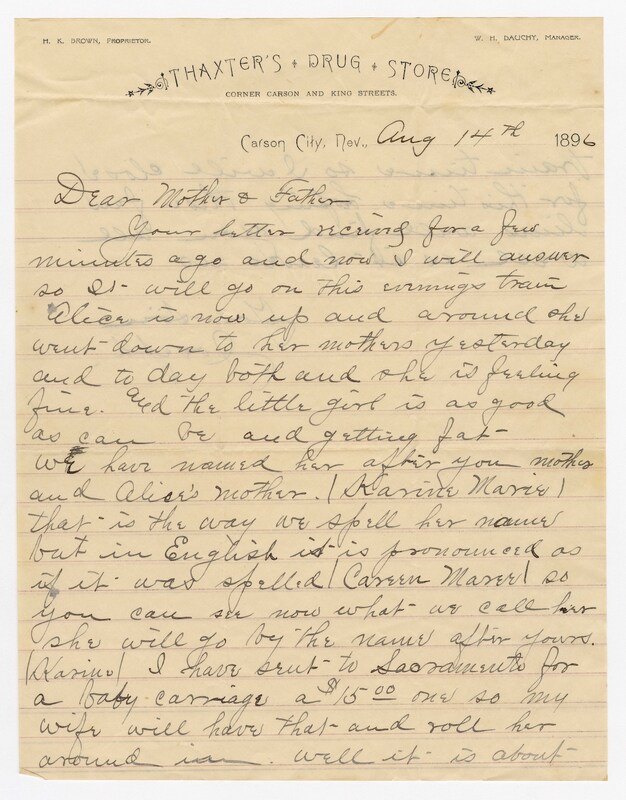 H. K. BROWN, PROPRIETOR.
W. H. DAUCHY, MANAGER.
THAXTER'S DRUG STORE
CORNER CARSON AND KING STREETS.
Carson City, Nev., Aug 14th 1896
Dear Mother & Father
Your letter recieved for a few
minutes ago and now I will answer
so It will go on this evenings train
Alice is now up and around she
went down to her mothers yesterday
and to day both and she is feeling
fine. and the little girl is as good
as can be and getting fat
We have named her after you mother
and Alice's mother. (Karine Marie)
that is the way we spell her name
but in English it is pronounced as
if it was spelled (Careen Maree) so
you can see now what we call her
she will go by the name after yours.
(Karine) I have sent to Sacramento for
a baby carriage a $15.00 one so my
wife will have that and roll her
around in. well it is about